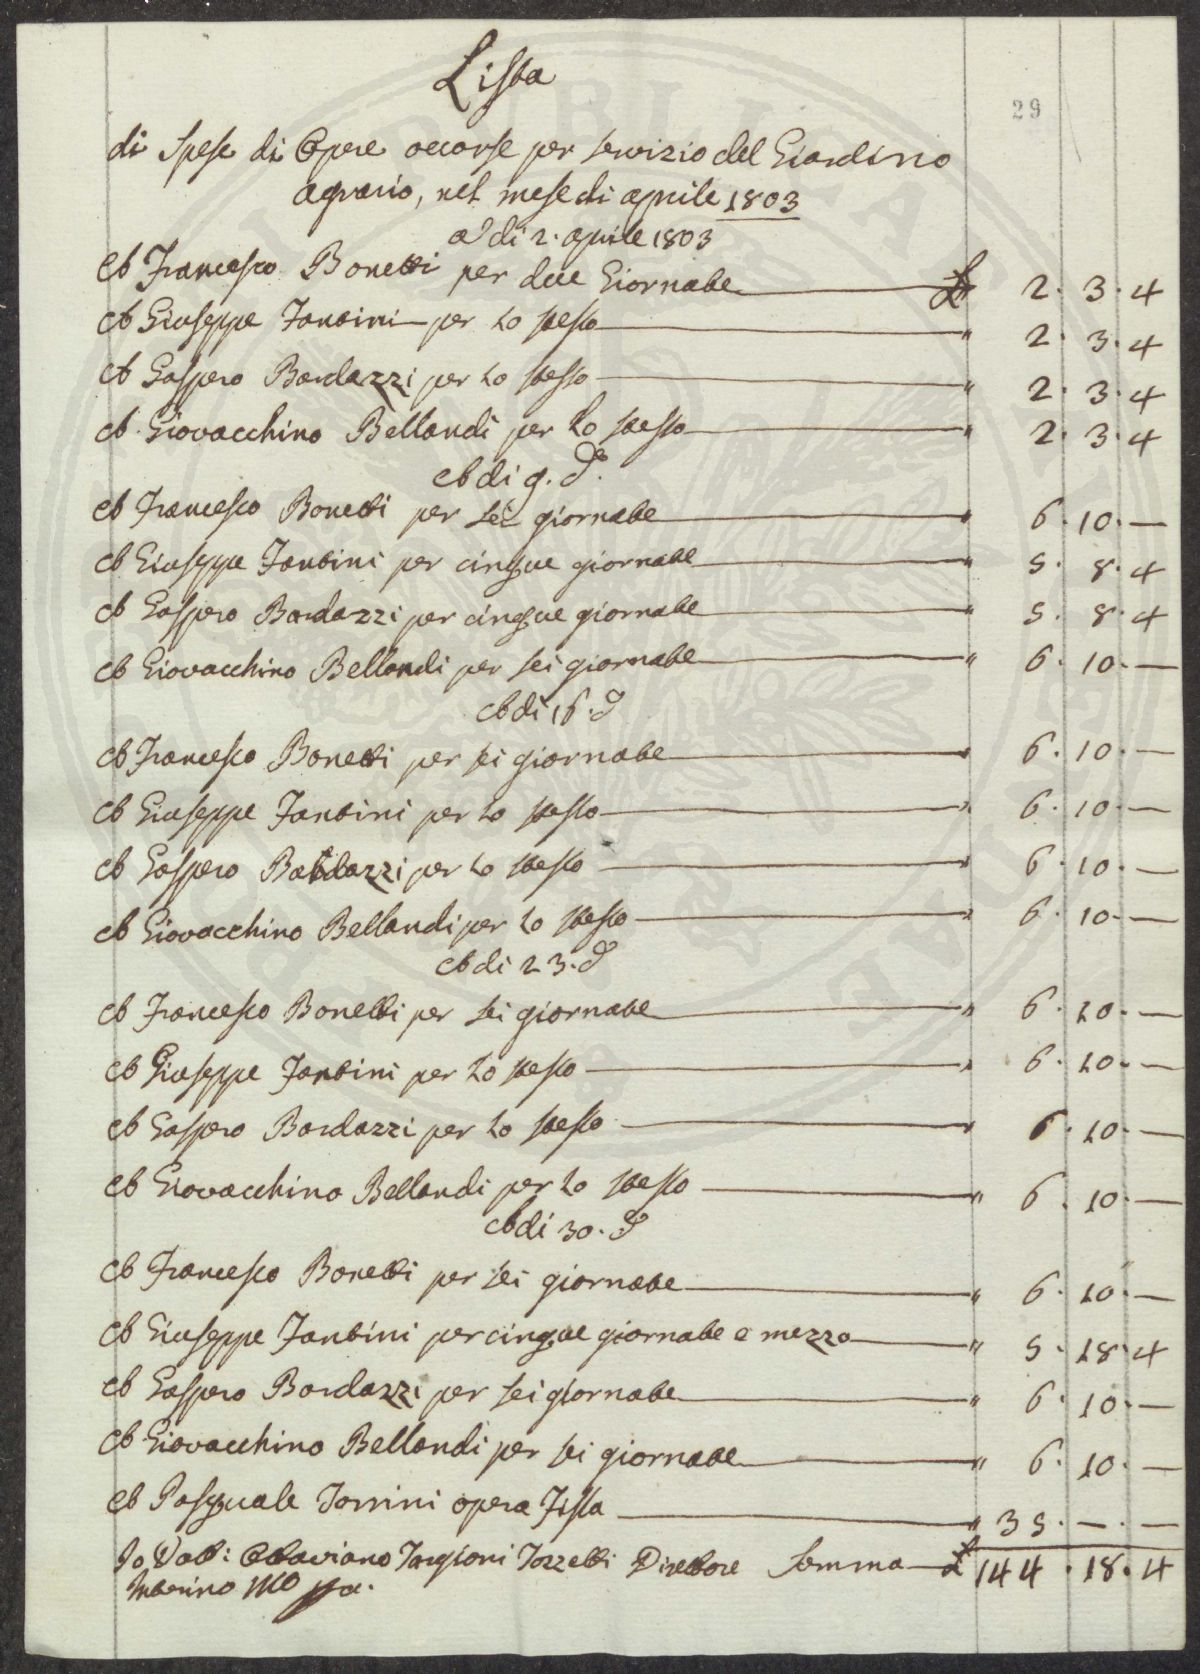 Lista
29
di Spese di Opere occorse per servizio del Giardino
agrario, nel mese di aprile 1803
A di 2. aprile 1803
A Francesco Bonetti per due Giornate £ 2. 3. 4
A Giuseppe Fantini per lo stesso " 2. 3. 4
A Gaspero Bardazzi per lo stesso " 2. 3. 4
A Giovacchino Bellandi per lo stesso " 2. 3. 4
A di 9. do
A Francesco Bonetti per sei giornate " 6. 10. —
A Giuseppe Fantini per cinque giornate " 5. 8. 4
A Gaspero Bardazzi per cinque giornate " 5. 8. 4
A Giovacchino Bellandi per sei giornate " 6. 10. —
A di 16. do
A Francesco Bonetti per sei giornate " 6. 10. —
A Giuseppe Fantini per lo stesso " 6. 10. —
A Gaspero Bardazzi per lo stesso " 6. 10. —
A Giovacchino Bellandi per lo stesso " 6. 10. —
A di 23. do
A Francesco Bonetti per sei giornate " 6. 10. —
A Giuseppe Fantini per lo stesso " 6. 10. —
A Gaspero Bardazzi per lo stesso " 6. 10. —
A Giovacchino Bellandi per lo stesso " 6. 10. —
A di 30. do
A Francesco Bonetti per sei giornate " 6. 10. —
A Giuseppe Fantini per cinque giornate e mezzo " 5. 18. 4
A Gaspero Bardazzi per sei giornate " 6. 10. —
A Giovacchino Bellandi per sei giornate " 6. 10. —
A Pasquale Torrini opera Fissa " 35. —. —
Io Dott: Ottaviano Targioni Tozzetti Direttore Somma £ 144. 18. 4